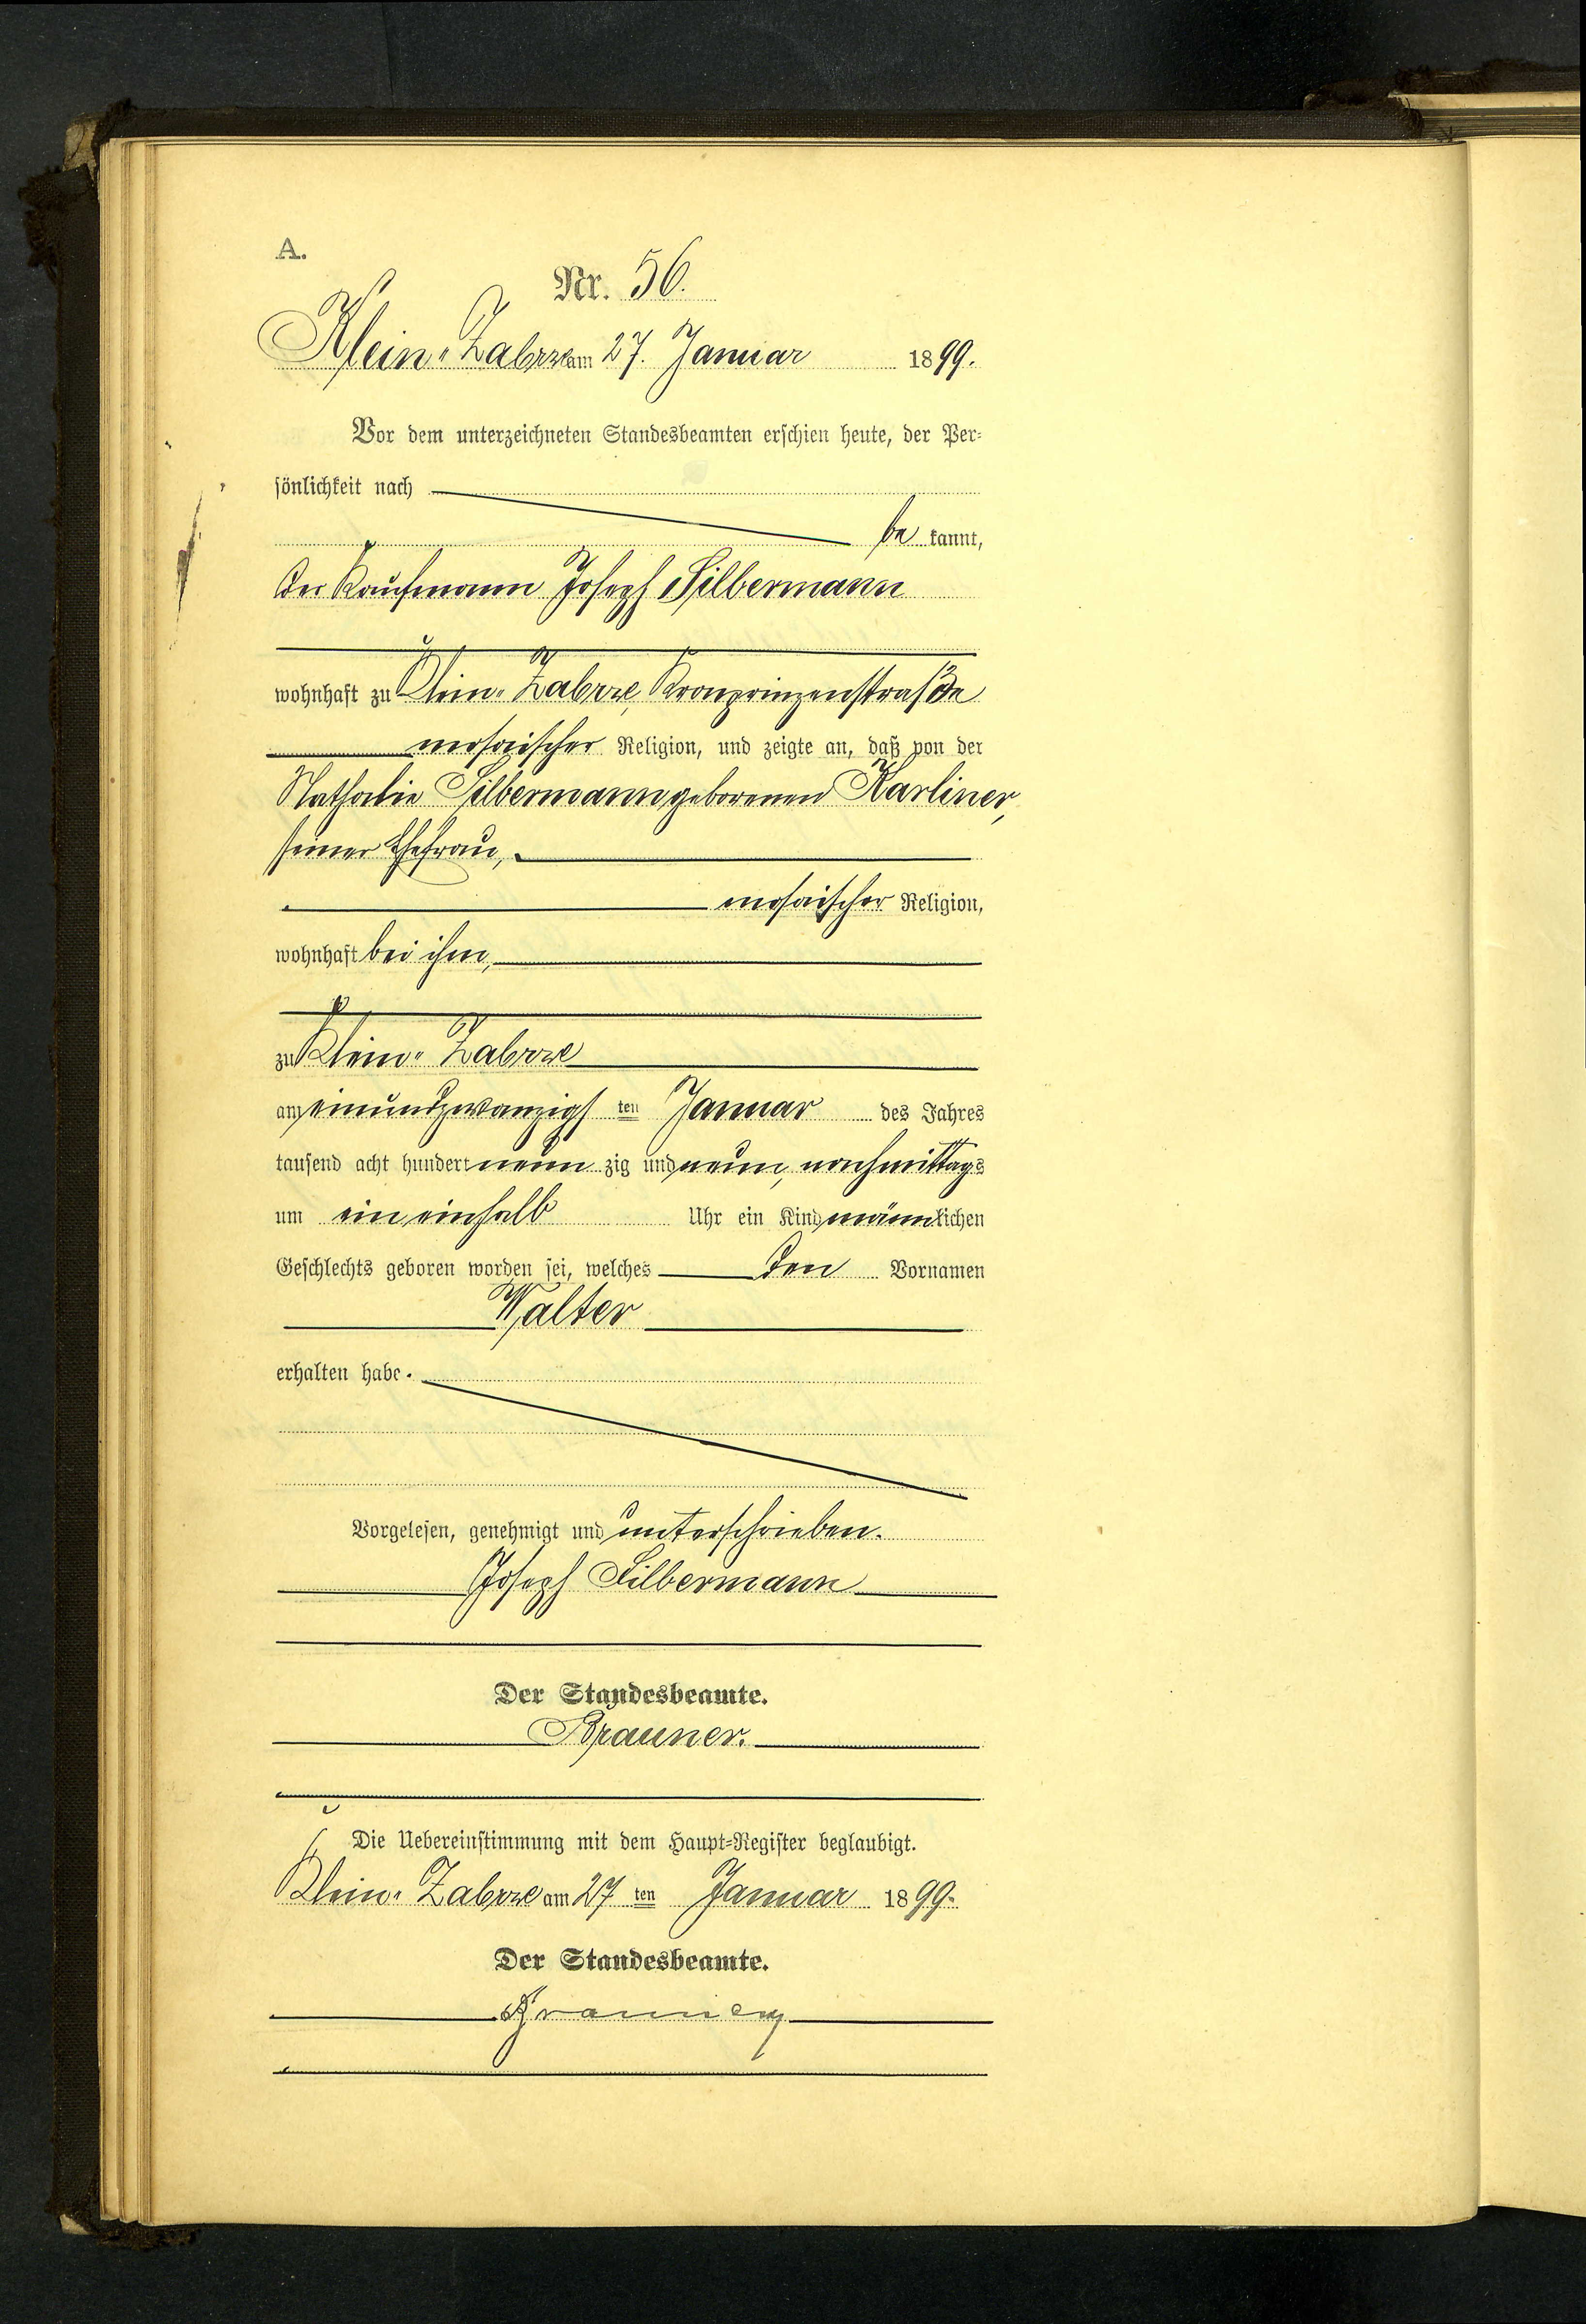 A.
Nr. 56.
Klein-Zabrze am 27. Januar 1899.
Vor dem unterzeichneten Standesbeamten erschien heute, der Per-
sönlichkeit nach
be kannt,
der Kaufmann Joseph Silbermann
wohnhaft zu Klein-Zabrze, Kronprinzenstraße
mosaischer Religion, und zeigte an, daß von der
Nathalie Silbermann geborenen Karliner,
seiner Ehefrau,
mosaischer Religion,
wohnhaft bei ihm,
zu Klein-Zabrze
am einundzwanzigsten Januar des Jahres
tausend acht hundert neunzig und neun, nachmittags
um ein einhalb Uhr ein Kind männlichen
Geschlechts geboren worden sei, welches den Vornamen
Walter
erhalten habe.
Vorgelesen, genehmigt und unterschrieben.
Joseph Silbermann
Der Standesbeamte.
Brauner.
Die Uebereinstimmung mit dem Haupt-Register beglaubigt.
Klein-Zabrze am 27ten Januar 1899.
Der Standesbeamte.
Brauner